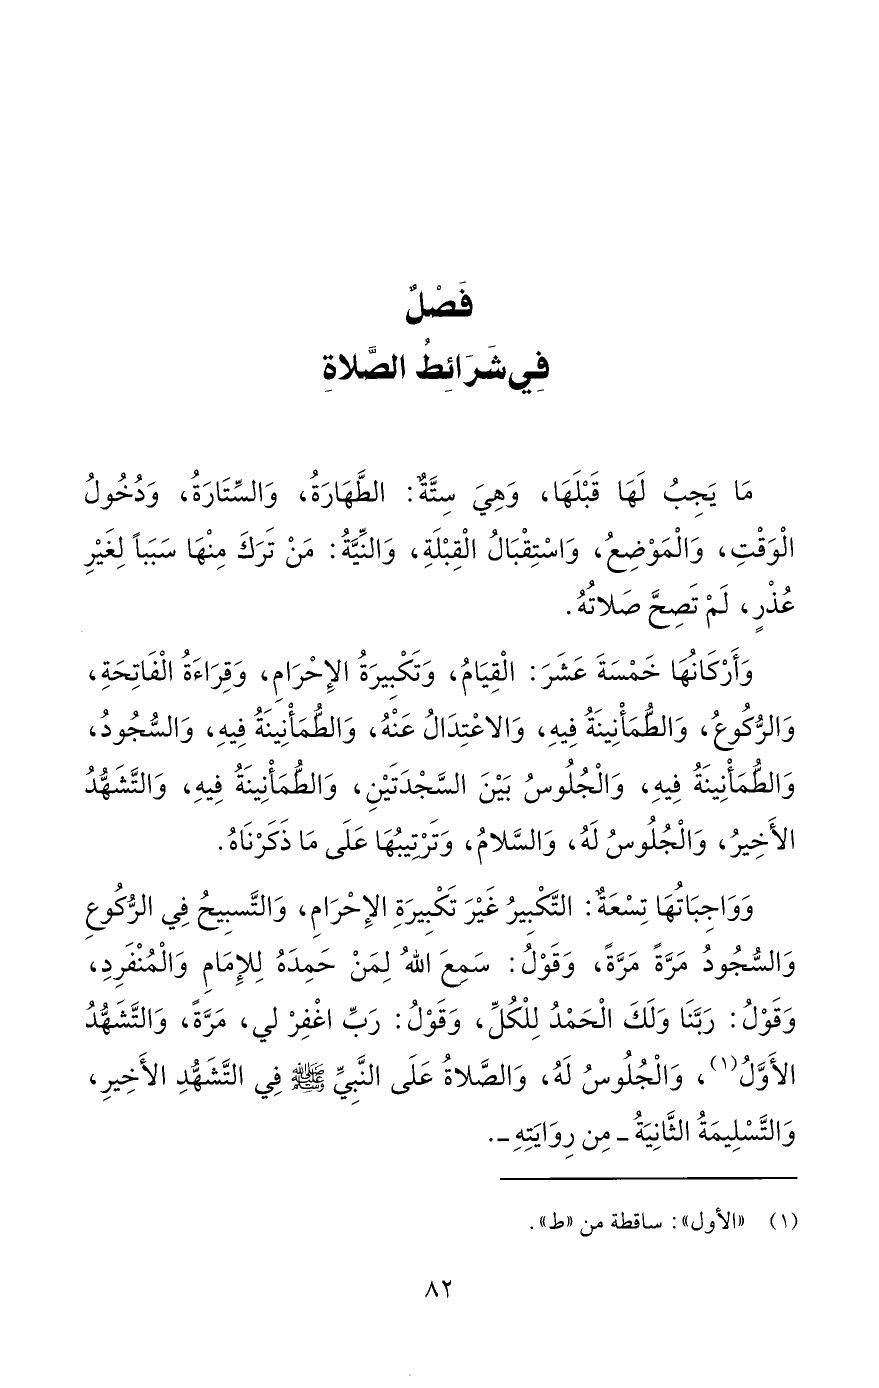 فَصْلٌ
فِي شَرَائِطُ الصَّلاةِ
مَا يَجِبُ لَهَا قَبْلَهَا، وَهِيَ سِتَّةٌ: الطَّهَارَةُ، وَالسِّتَارَةُ، وَدُخُولُ
الْوَقْتِ، وَالْمَوْضِعُ، وَاسْتِقْبَالُ الْقِبْلَةِ، وَالنِّيَّةُ: مَنْ تَرَكَ مِنْهَا سَبَباً لِغَيْرِ
عُذْرٍ، لَمْ تَصِحَّ صَلاتُهُ.
وَأَرْكَانُهَا خَمْسَةَ عَشَرَ: الْقِيَامُ، وَتَكْبِيرَةُ الإِحْرَامِ، وَقِرَاءَةُ الْفَاتِحَةِ،
وَالرُّكُوعُ، وَالطُّمَأْنِينَةُ فِيهِ، وَالاعْتِدَالُ عَنْهُ، وَالطُّمَأْنِينَةُ فِيهِ، وَالسُّجُودُ،
وَالطُّمَأْنِينَةُ فِيهِ، وَالْجُلُوسُ بَيْنَ السَّجْدَتَيْنِ، وَالطُّمَأْنِينَةُ فِيهِ، وَالتَّشَهُّدُ
الأَخِيرُ، وَالْجُلُوسُ لَهُ، وَالسَّلامُ، وَتَرْتِيبُهَا عَلَى مَا ذَكَرْنَاهُ.
وَوَاجِبَاتُهَا تِسْعَةٌ: التَّكْبِيرُ غَيْرَ تَكْبِيرَةِ الإِحْرَامِ، وَالتَّسبِيحُ فِي الرُّكُوعِ
وَالسُّجُودُ مَرَّةً مَرَّةً، وَقَوْلُ: سَمِعَ اللهُ لِمَنْ حَمِدَهُ لِلإِمَامِ وَالْمُنْفَرِدِ،
وَقَوْلُ: رَبَّنَا وَلَكَ الْحَمْدُ لِلْكُلِّ، وَقَوْلُ: رَبِّ اغْفِرْ لي، مَرَّةً، وَالتَّشَهُّدُ
الأَوَّلُ(١)، وَالْجُلُوسُ لَهُ، وَالصَّلاةُ عَلَى النَّبِيِّ ﷺ فِي التَّشَهُّدِ الأَخِيرِ،
وَالتَّسْلِيمَةُ الثَّانِيَةُ ـ مِن رِوَايَتِهِ ـ.
(١) «الأول»: ساقطة من «ط».
٨٢